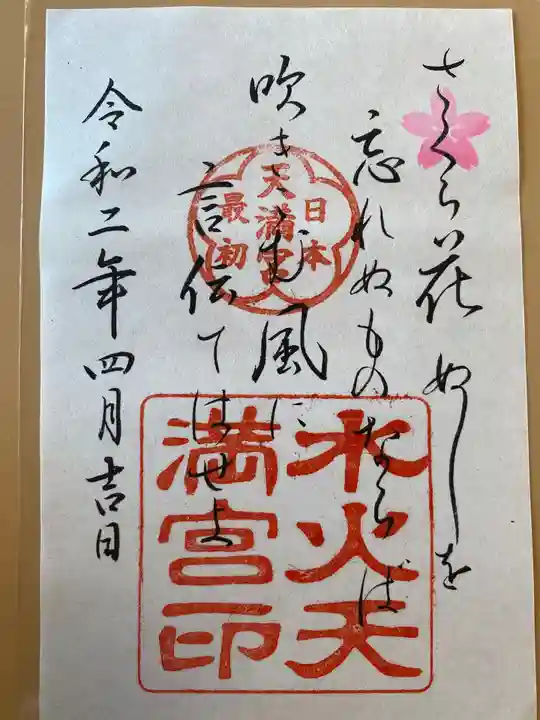 さくら花 ぬしを
忘れぬものならば
吹きこむ風に
言伝てはせよ
令和二年四月吉日
日本
天満宮
最初
水火天
満宮印